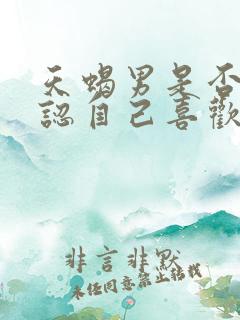 天蝎男呆否
認自己喜歡
非言非默
未经同意禁止转载